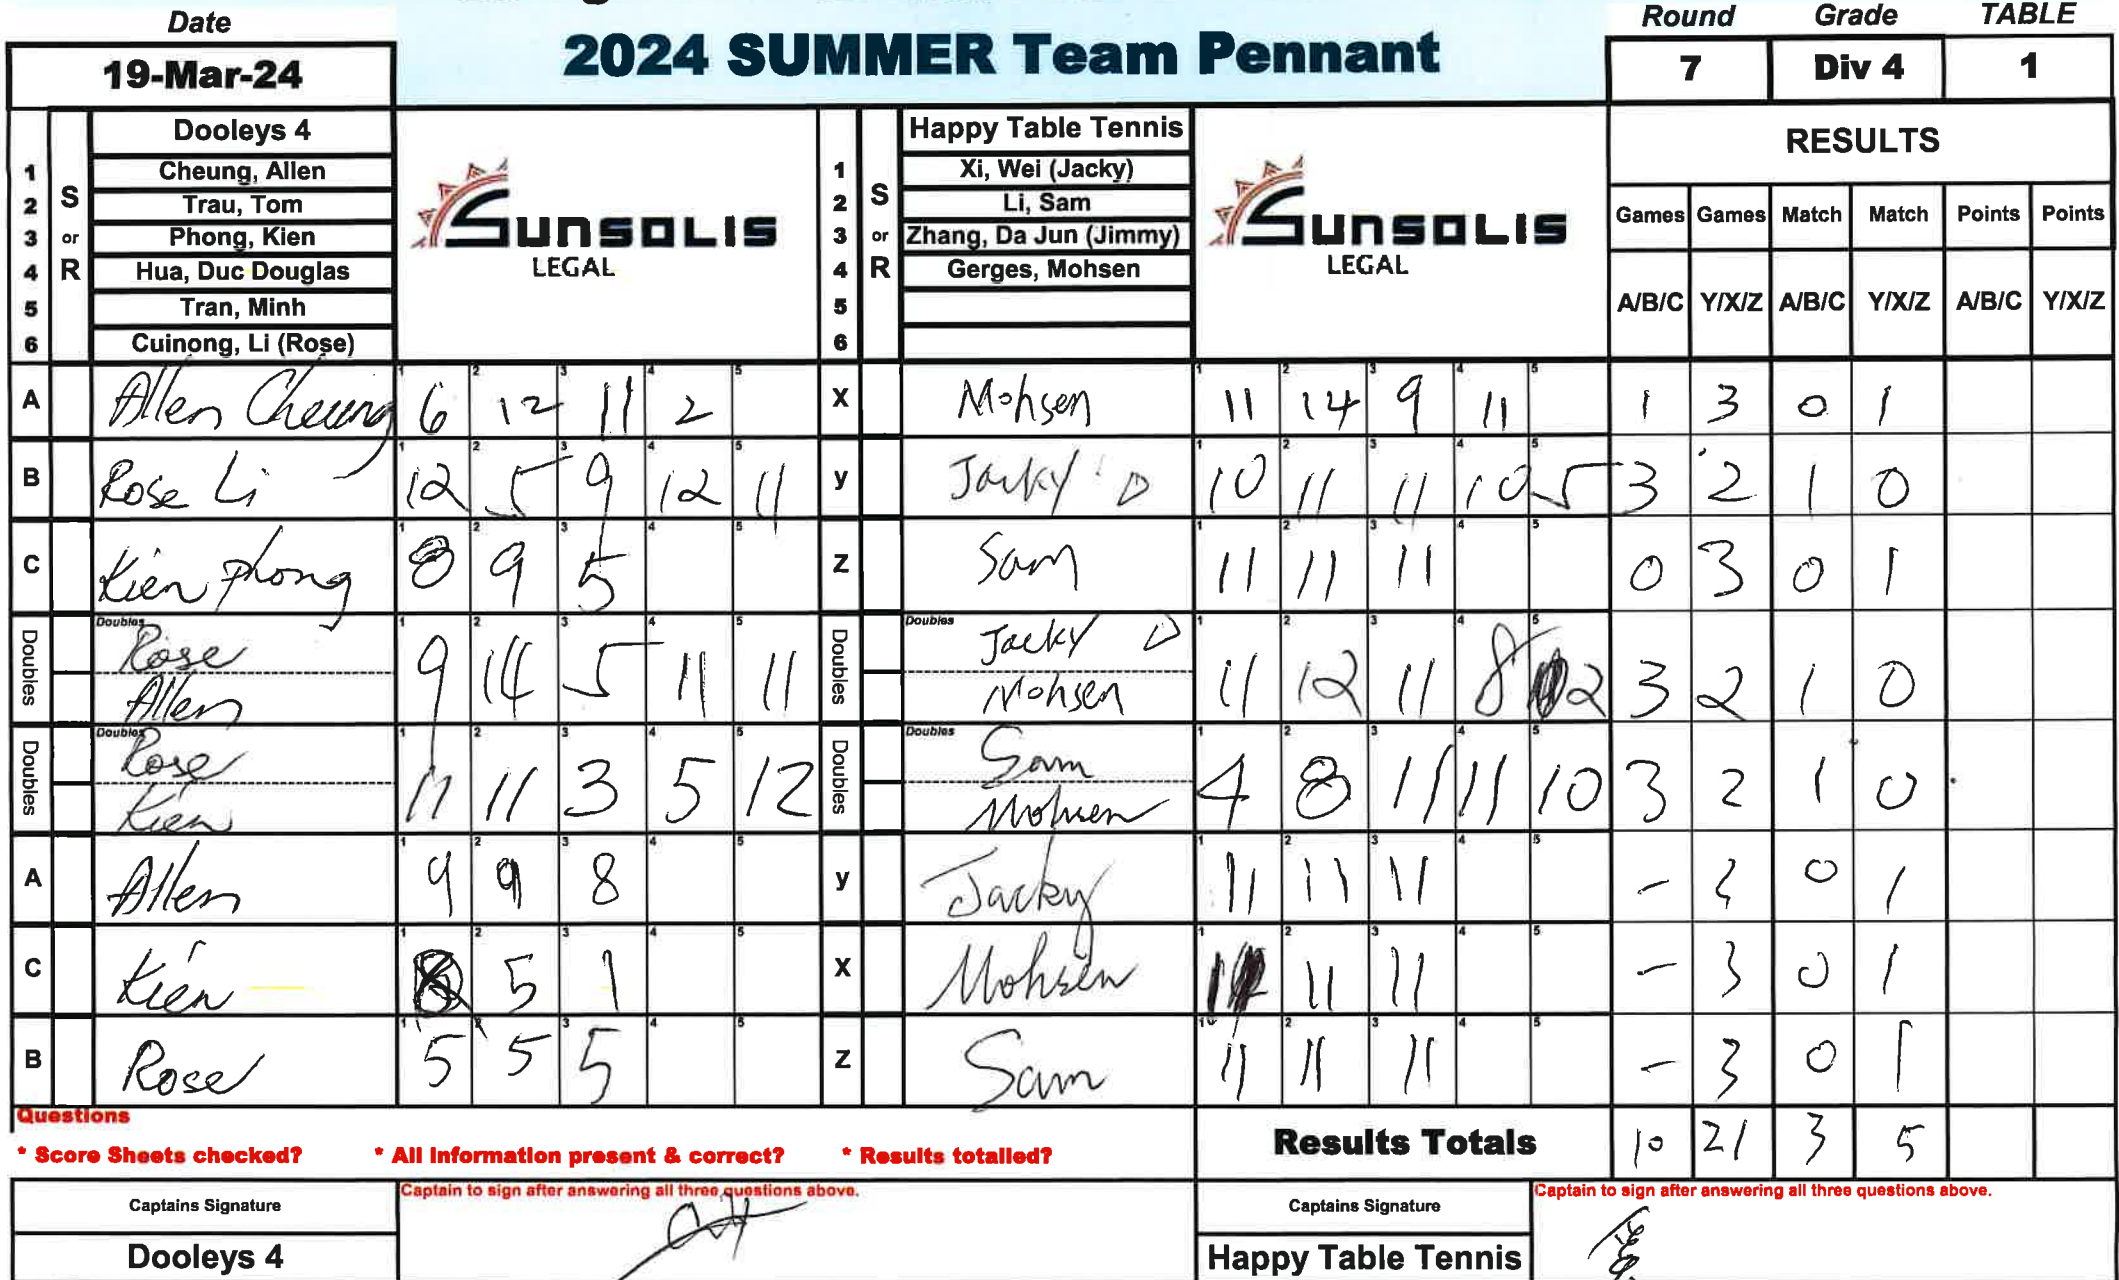 Date
19-Mar-24
2024 SUMMER Team Pennant
Round Grade TABLE
7 Div 4 1
1 2 3 4 5 6
S or R
Dooleys 4
Cheung, Allen
Trau, Tom
Phong, Kien
Hua, Duc Douglas
Tran, Minh
Cuinong, Li (Rose)
SUNSOLIS
LEGAL
1 2 3 4 5 6
S or R
Happy Table Tennis
Xi, Wei (Jacky)
Li, Sam
Zhang, Da Jun (Jimmy)
Gerges, Mohsen
SUNSOLIS
LEGAL
RESULTS
Games Games Match Match Points Points
A/B/C Y/X/Z A/B/C Y/X/Z A/B/C Y/X/Z
A Allen Cheung 6 12 11 2 X Mohsen 11 14 9 11 1 3 0 1
B Rose Li 12 5 9 12 11 y Jacky D 10 11 11 10 5 3 2 1 0
C Kien Phong 8 9 5 Z Sam 11 11 11 0 3 0 1
Doubles Doubles Rose Allen 9 14 5 11 11 Doubles Doubles Jacky D Mohsen 11 12 11 8 2 3 2 1 0
Doubles Doubles Rose Kien 11 11 3 5 12 Doubles Doubles Sam Mohsen 4 8 11 11 10 3 2 1 0
A Allen 9 9 8 y Jacky 11 11 11 - 3 0 1
C Kien 5 1 X Mohsen 11 11 - 3 0 1
B Rose 5 5 5 Z Sam 11 11 11 - 3 0 1
Questions
* Score Sheets checked? * All Information present & correct? * Results totalled?
Results Totals 10 21 3 5
Captains Signature
Captain to sign after answering all three questions above.
Dooleys 4
Captains Signature
Captain to sign after answering all three questions above.
Happy Table Tennis